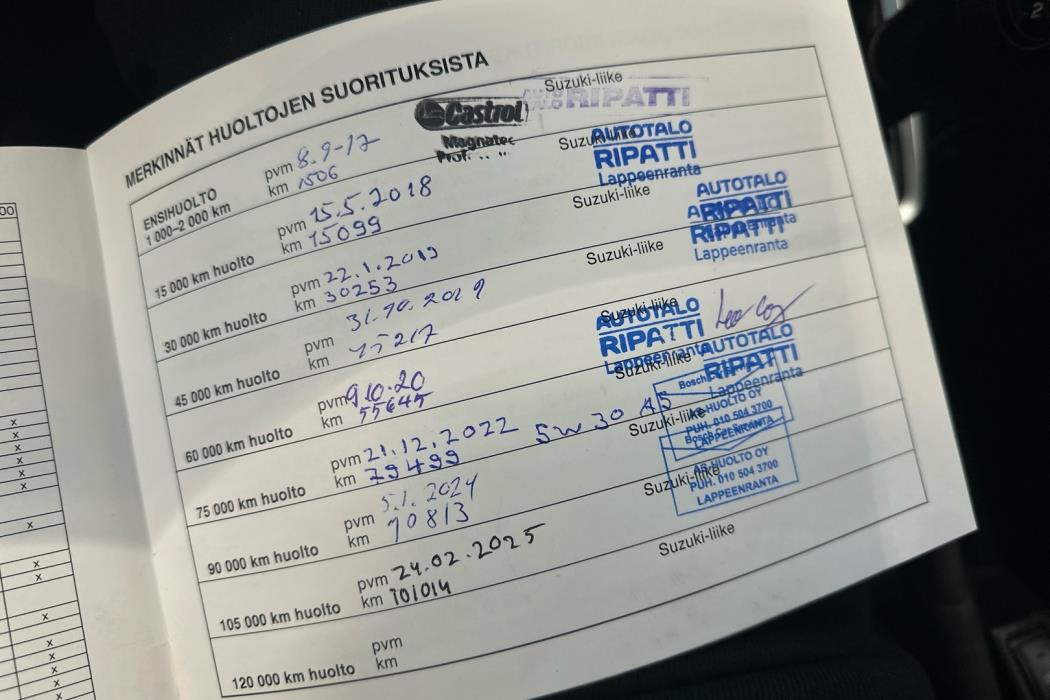 MERKINNÄT HUOLTOJEN SUORITUKSISTA
ENSIHUOLTO
1 000–2 000 km
pvm 8.9-17
km 1506
Castrol
Magnatec
Prof.
Suzuki-liike
AUTOTALO RIPATTI
15 000 km huolto
pvm 15.5.2018
km 15099
Suzuki-liike
AUTOTALO
RIPATTI
Lappeenranta
30 000 km huolto
pvm 22.1.2019
km 30253
Suzuki-liike
AUTOTALO
RIPATTI
45 000 km huolto
31.10.2019
pvm
km
Suzuki-liike
RIPATTI
Lappeenranta
60 000 km huolto
pvm 9.10.20
km 55645
Suzuki-liike
AUTOTALO
RIPATTI
Lappeenranta
75 000 km huolto
pvm 21.12.2022 5W30 A5
km 79499
Suzuki-liike
AUTOTALO
RIPATTI
Lappeenranta
90 000 km huolto
5.1.2024
pvm
km 90813
Suzuki-liike
Bosch
AS-HUOLTO OY
PUH. 010 504 3700
LAPPEENRANTA
105 000 km huolto
pvm 24.02.2025
km 101014
Suzuki-liike
Bosch Car Service
AS-HUOLTO OY
PUH. 010 504 3700
LAPPEENRANTA
120 000 km huolto
pvm
km
Suzuki-liike
00
x
x
x
x
x
x
x
x
x
x
x
x
x
x